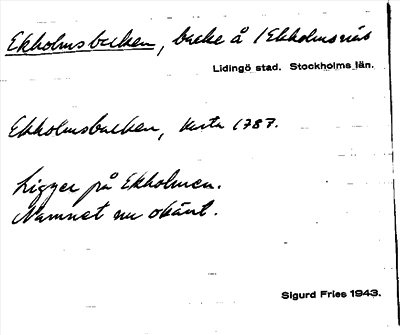 Ekholmsbacken, backe å Ekholmsnäs
Lidingö stad. Stockholms län.
Ekholmsbacken, karta 1787.
Ligger på Ekholmen.
Namnet nu okänt.
Sigurd Fries 1943.